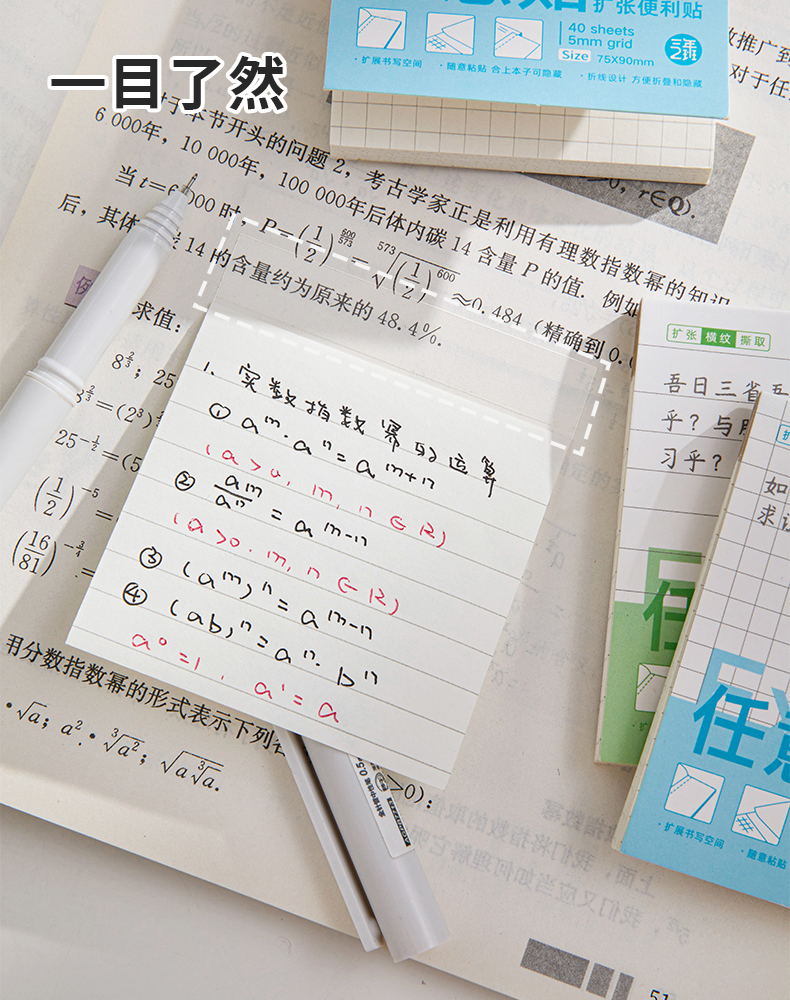 一目了然
扩张便利贴
40 sheets
5mm grid
Size 75X90mm
· 扩展书写空间 · 随意粘贴 合上本子可隐藏 · 折线设计 方便折叠和隐藏
数推广到
对于任
对于本节开头的问题 2，考古学家正是利用有理数指数幂的知识
r∈Q).
6 000年，10 000年，100 000年后体内碳 14 含量 P 的值. 例如
当 t=6 000 时，P=(1/2)^{600/573}=\sqrt[573]{(1/2)^{600}}≈0.484 (精确到 0.
后，其体 碳 14 的含量约为原来的 48.4%.
例
求值：
8^{2/3}； 25
8^{2/3}=(2³)
25^{-1/2}=(5
(1/2)^{-5}=
(16/81)^{-3/4}=
1、实数指数幂的运算
① a^m·a^n=a^{m+n}
(a>0, m, n∈R)
② a^m/a^n=a^{m-n}
(a>0. m, n∈R)
③ (a^m)^n=a^{m-n}
④ (ab)^n=a^n·b^n
a⁰=1, a¹=a
用分数指数幂的形式表示下列各
>0)：
·√a； a²·∛a²； √(a∛a).
扩张 横纹 撕取
吾日三省吾
乎？与朋
习乎？
任
如
求
任意
· 扩展书写空间 · 随意粘贴
51